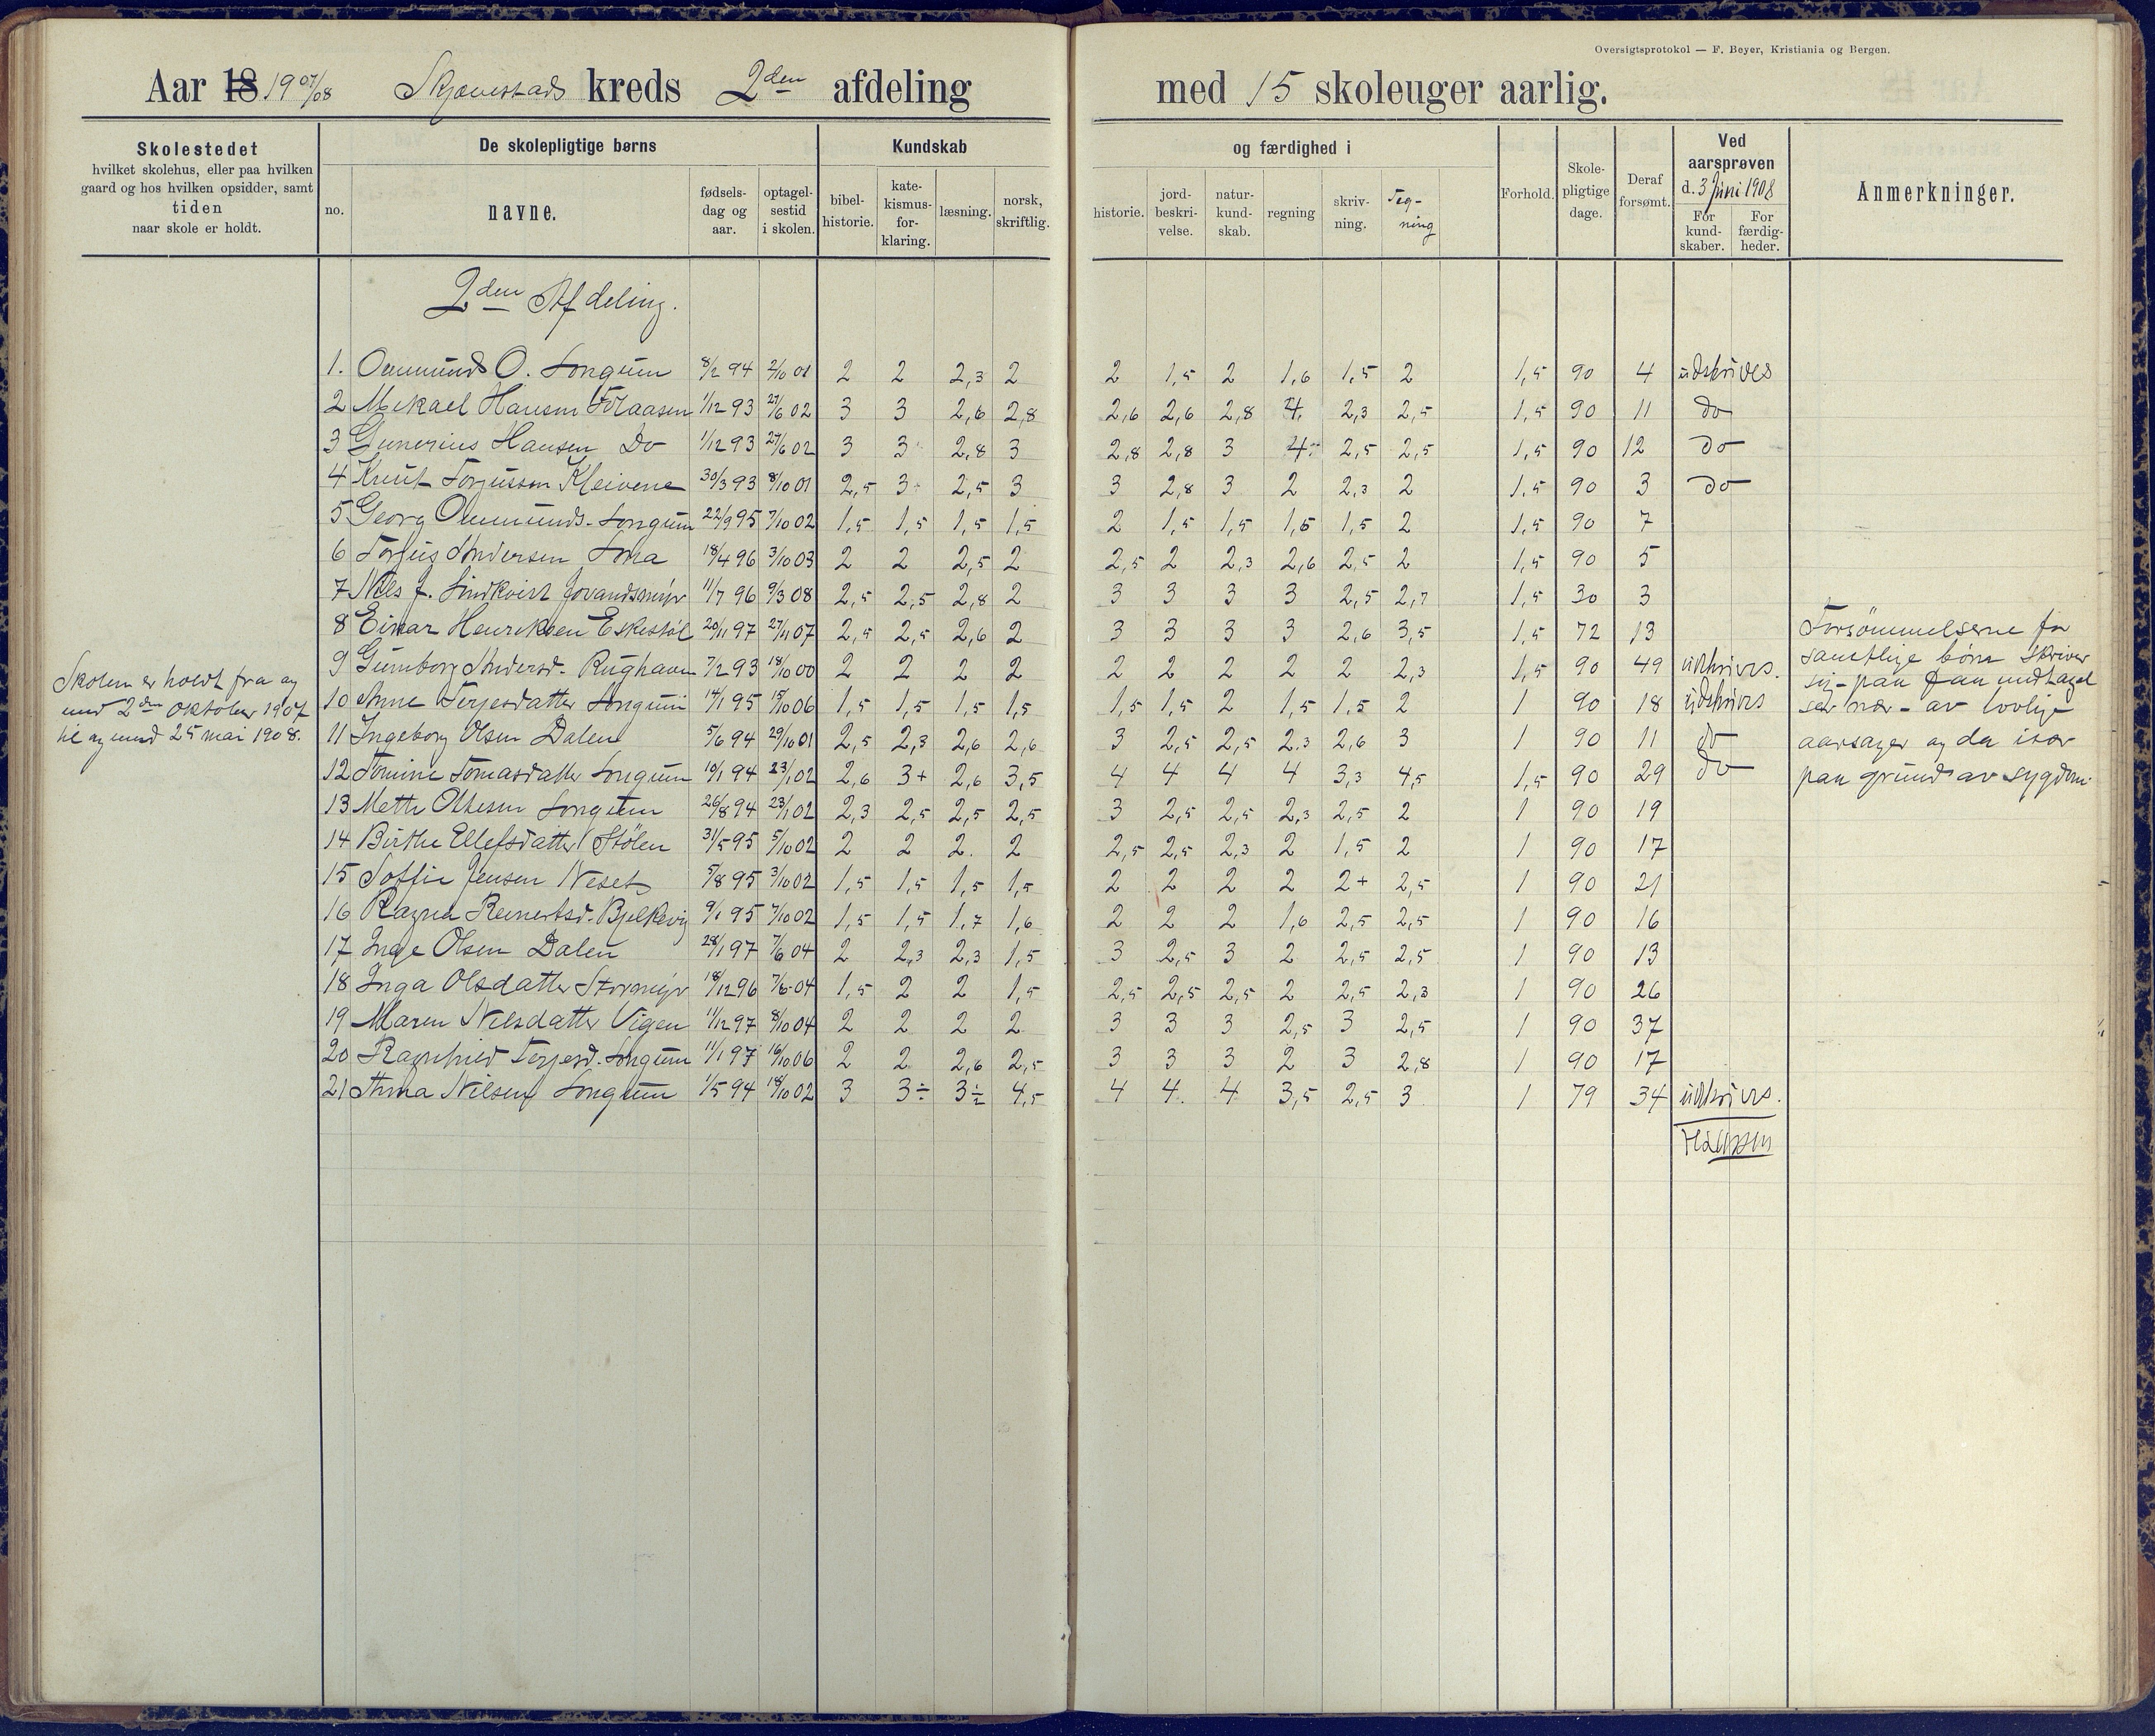 Oversigtsprotokol — F. Beyer, Kristiania og Bergen.
Aar 18 1907/08 Skjævestads kreds 2den afdeling med 15 skoleuger aarlig.
Skolestedet hvilket skolehus, eller paa hvilken gaard og hos hvilken opsidder, samt tiden naar skole er holdt.
De skolepligtige børns
no. navne. fødsels-dag og aar. optagel-sestid i skolen.
Kundskab og færdighed i
bibel-historie. kate-kismus-for-klaring. læsning. norsk, skriftlig. historie. jord-beskri-velse. natur-kund-skab. regning skriv-ning. Teg-ning
Forhold. Skole-pligtige dage. Deraf forsømt.
Ved aarsprøven d. 3 Juni 1908
For kund-skaber. For færdig-heder.
Anmerkninger.
2den Afdeling.
1. Ommunds O. Longum 8/2 94 2/10 01 2 2 2,3 2 2 1,5 2 1,6 1,5 2 1,5 90 4 udskrives
2 Mikael Hansen Folaasen 1/12 93 27/6 02 3 3 2,6 2,8 2,6 2,6 2,8 4. 2,3 2,5 1,5 90 11 do
3 Gunerius Hansen Do 1/12 93 27/6 02 3 3 2,8 3 2,8 2,8 3 4. 2,5 2,5 1,5 90 12 do
4 Knut Torjussen Kleivene 30/3 93 8/10 01 2,5 3 2,5 3 3 2,8 3 2 2,3 2 1,5 90 3 do
5 Georg Ommunds. Longum 22/9 95 7/10 02 1,5 1,5 1,5 1,5 2 1,5 1,5 1,6 1,5 2 1,5 90 7
6 Torjus Andersen Lona 18/4 96 3/10 03 2 2 2,5 2 2,5 2 2,3 2,6 2,5 2 1,5 90 5
7 Nils J. Lindkvist Jovandsmyr 11/7 96 9/3 08 2,5 2,5 2,8 2 3 3 3 3 2,5 2,7 1,5 30 3
8 Einar Henriksen Eskestøl 20/11 97 27/11 07 2,5 2,5 2,6 2 3 3 3 3 2,6 3,5 1,5 72 13
9 Gunborg Andersd. Rughaven 7/2 93 18/10 00 2 2 2 2 2 2 2 2 2 2,3 1,5 90 49 udskrives.
10 Anne Terjesdatter Longum 14/1 95 15/10 06 1,5 1,5 1,5 1,5 1,5 1,5 2 1,5 1,5 2 1 90 18 udskrives
11 Ingeborg Olsen Dalen 5/6 94 29/10 01 2,5 2,3 2,6 2,6 3 2,5 2,5 2,3 2,6 3 1 90 11 do
12 Tomine Tomasdatter Longum 10/1 94 23/1 02 2,6 3+ 2,6 3,5 4 4 4 4 3,3 4,5 1,5 90 29 do
13 Mette Olsen Longum 26/8 94 23/1 02 2,3 2,5 2,5 2,5 3 2,5 2,5 2,3 2,5 2 1 90 19
14 Birthe Ellefsdatter Stølen 31/5 95 5/10 02 2 2 2. 2 2,5 2,5 2,3 2 1,5 2 1 90 17
15 Soffie Jensen Neset 5/8 95 3/10 02 1,5 1,5 1,5 1,5 2 2 2 2 2+ 2,5 1 90 21
16 Ragna Reinertsd. Bjelkevig 9/1 95 7/10 02 1,5 1,5 1,7 1,6 2 2 2 1,6 2,5 2,5 1 90 16
17 Inge Olsen Dalen 28/1 97 7/6 04 2 2,3 2,3 1,5 3 2,5 3 2 2,5 2,5 1 90 13
18 Inga Olsdatter Stormyr 18/12 96 7/6 04 1,5 2 2 1,5 2,5 2,5 2,5 2 2,5 2,3 1 90 26
19 Maren Nilsdatter Vigen 11/12 97 8/10 04 2 2 2 2 3 3 3 2,5 3 2,5 1 90 37
20 Ragnhild Terjesd. Longum 11/1 97 16/10 06 2 2 2,6 2,5 3 3 3 2 3 2,8 1 90 17
21 Anna Nilsen Longum 1/5 94 18/10 02 3 3÷ 3÷ 4,5 4 4. 4 3,5 2,5 3 1 79 34 udskrives.
Skolen er holdt fra og
med 2den oktober 1907
til og med 25 mai 1908.
Forsömmelserne for
samtlige börn skriver
sig paa faa undtagel
ser nær - av lovlige
aarsager og da især
paa grund av sygdom.